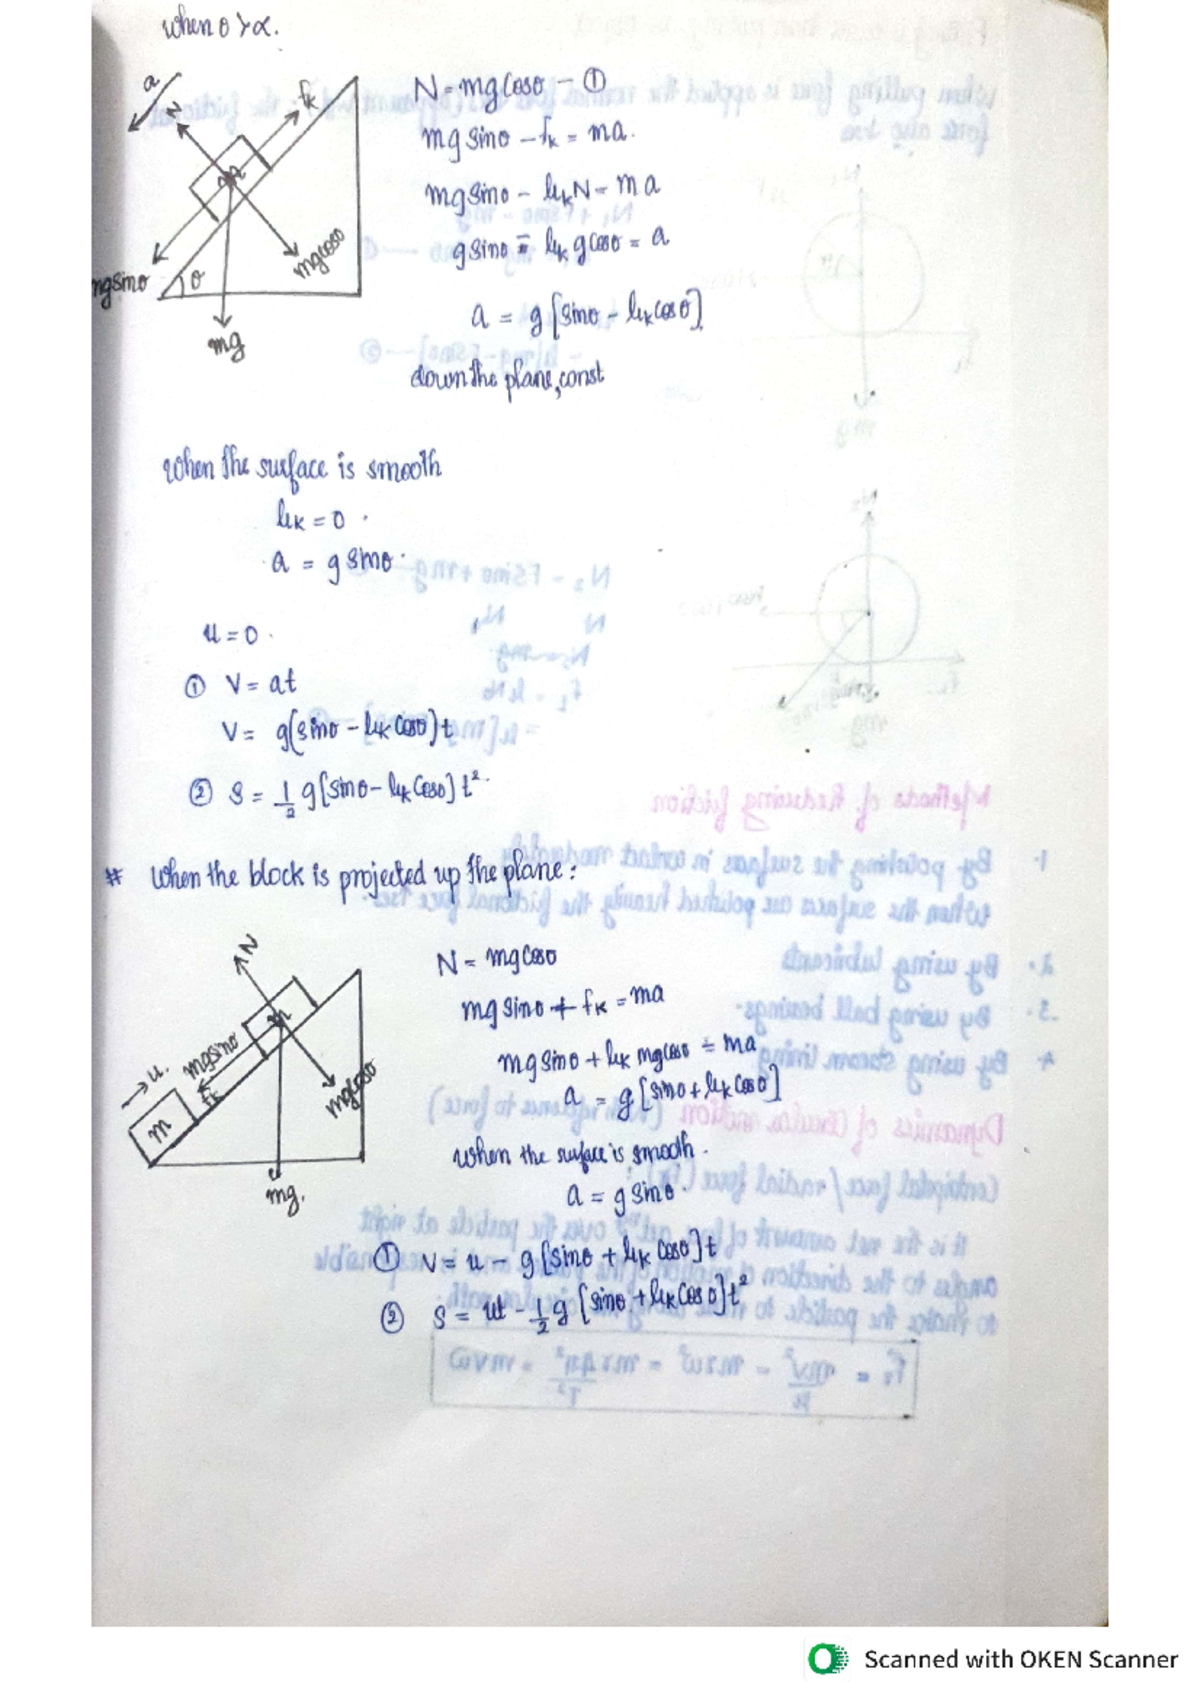 when θ > α.
a
N
fk
m
mg sinθ
θ
mg cosθ
mg
N = mg cosθ - ①
mg sinθ - fk = ma.
mg sinθ - μkN = ma
g sinθ - μk g cosθ = a
a = g [sinθ - μk cosθ]
down the plane, const
When the surface is smooth
μk = 0.
a = g sinθ.
u = 0.
① V = at
V = g[sinθ - μk cosθ] t
② S = 1/2 g[sinθ - μk cosθ] t².
# When the block is projected up the plane:
N
m
mg sinθ
→ u.
fk
m
mg cosθ
mg.
N = mg cosθ
mg sinθ + fk = ma
mg sinθ + μk mg cosθ = ma
a = g [sinθ + μk cosθ]
when the surface is smooth.
a = g sinθ.
① V = u - g [sinθ + μk cosθ] t
② S = ut - 1/2 g [sinθ + μk cosθ] t²
Scanned with OKEN Scanner